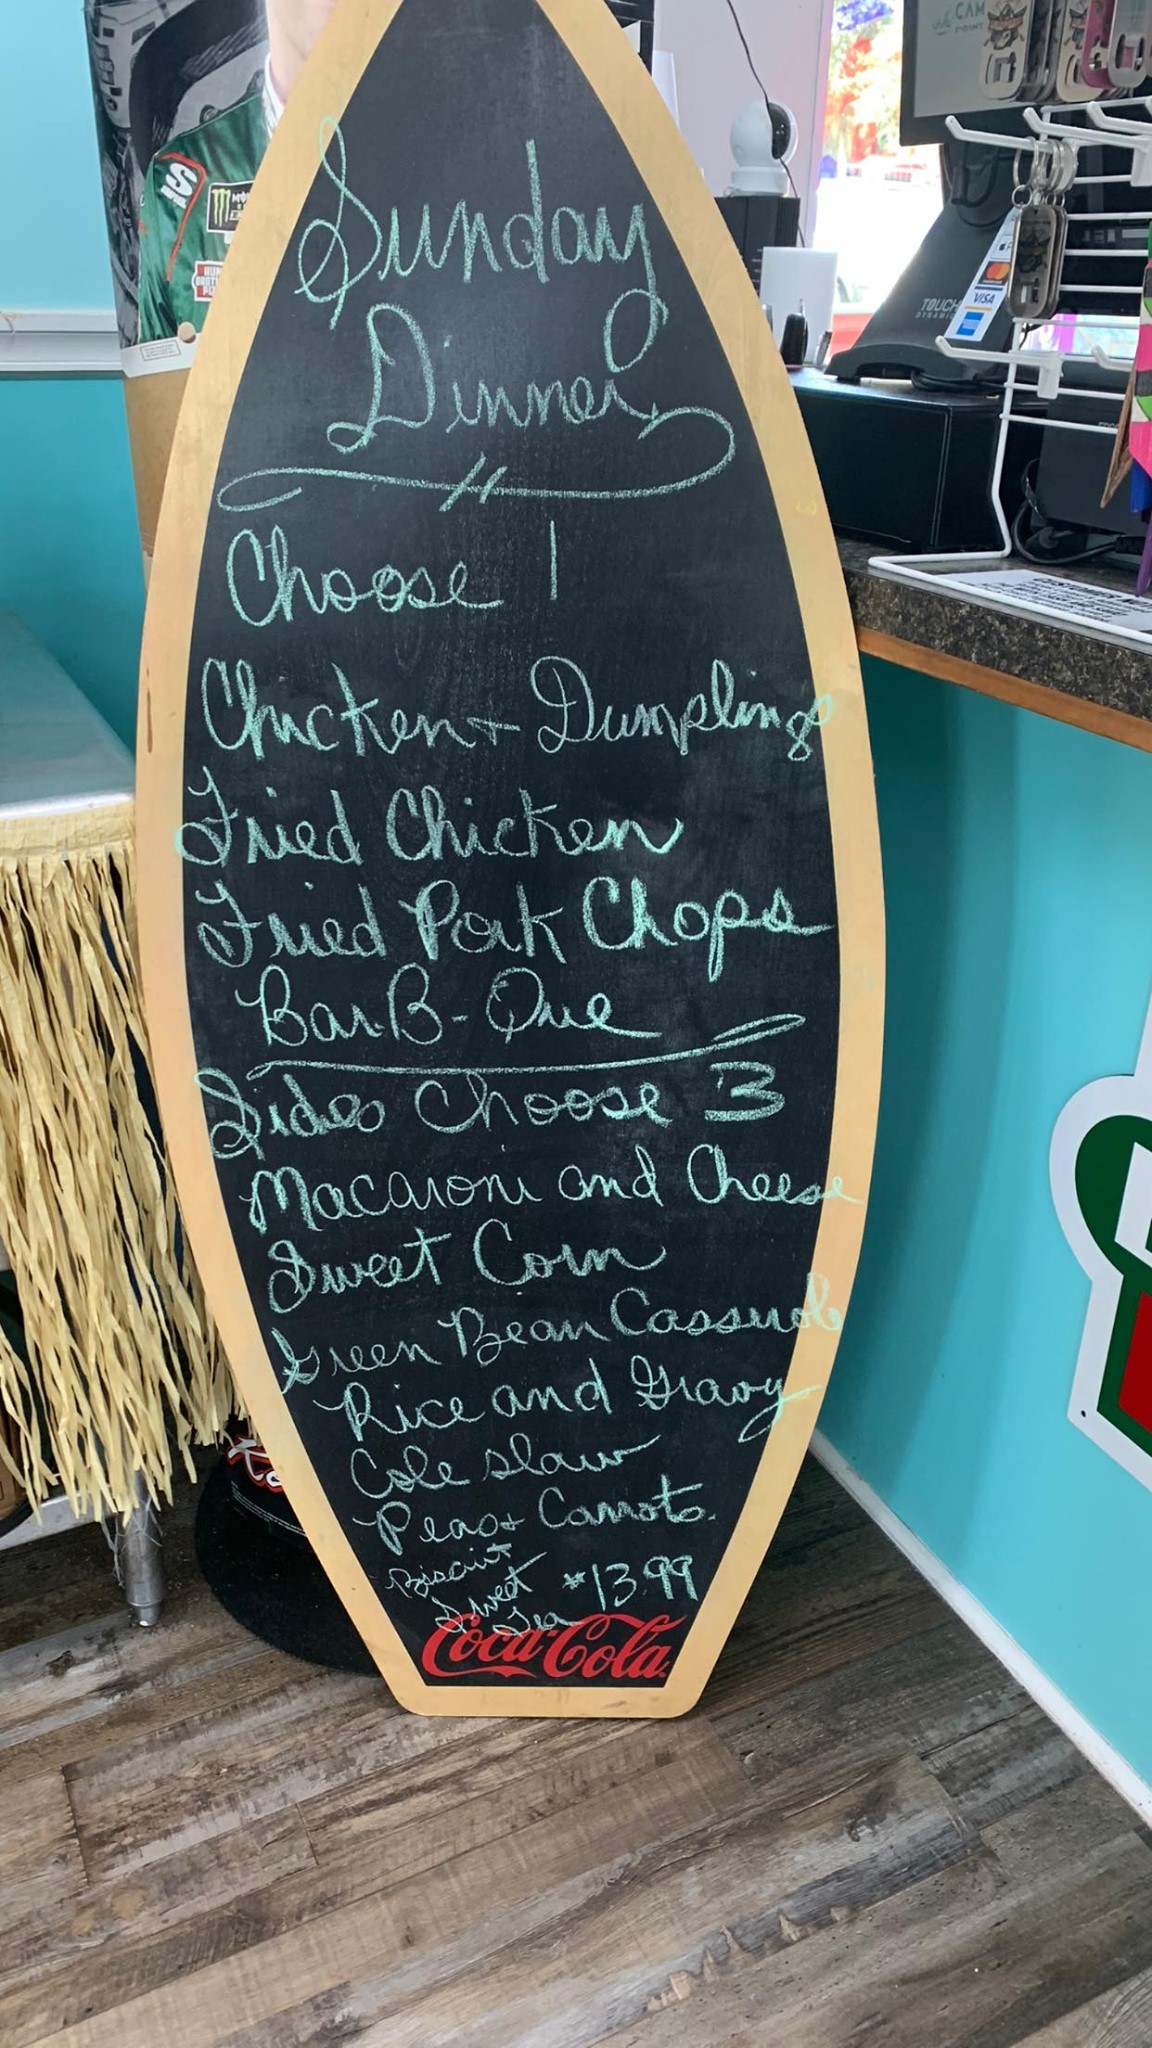 Sunday
Dinner
Choose 1
Chicken + Dumplings
Fried Chicken
Fried Pork Chops
Bar-B-Que
Sides Choose 3
Macaroni and Cheese
Sweet Corn
Green Bean Casserole
Rice and Gravy
Cole slaw
Peas + Carrots.
Biscuit
Sweet
Tea
$13.99
Coca-Cola
CAM
TOUCH
DYNAMIC
VISA